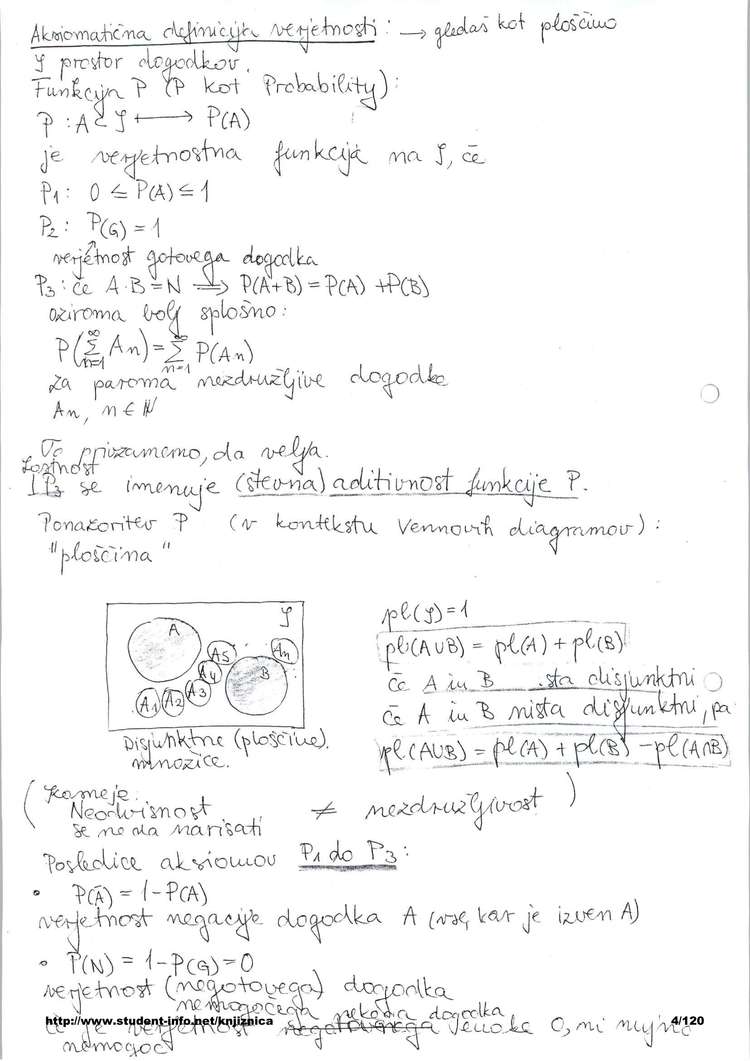 Aksiomatična definicija verjetnosti: → gledaš kot ploščino
𝒮 prostor dogodkov.
Funkcija P (P kot Probability):
P : A ⊂ 𝒮 ⟼ P(A)
je verjetnostna funkcija na 𝒮, če
P1: 0 ≤ P(A) ≤ 1
P2: P(G) = 1
verjetnost gotovega dogodka
P3: če A·B = N ⟹ P(A+B) = P(A) + P(B)
oziroma bolj splošno:
P(∑_{n=1}^{∞} An) = ∑_{n=1}^{∞} P(An)
za paroma nezdružljive dogodke
An, n ∈ ℕ
To privzamemo, da velja.
Lastnost
P3 se imenuje (števna) aditivnost funkcije P.
Ponazoritev P (v kontekstu Vennovih diagramov):
"ploščina"
𝒮
A
A5
An
A4
B
A1 A2 A3
Disjunktne (ploščine).
množice.
pl(𝒮) = 1
pl(A∪B) = pl(A) + pl(B)
če A in B sta disjunktni
če A in B nista disjunktni, pa
pl(A∪B) = pl(A) + pl(B) - pl(A∩B)
(kasneje:
Neodvisnost ≠ nezdružljivost)
se ne da narisati
Posledice aksiomov P1 do P3:
• P(Ā) = 1 - P(A)
verjetnost negacije dogodka A (vse, kar je izven A)
• P(N) = 1 - P(G) = 0
verjetnost (negotovega) dogodka
nemogočega
nekega dogodka
če je verjetnost negotovega enaka 0, ni nujno
nemogoč
http://www.student-info.net/knjiznica
4/120